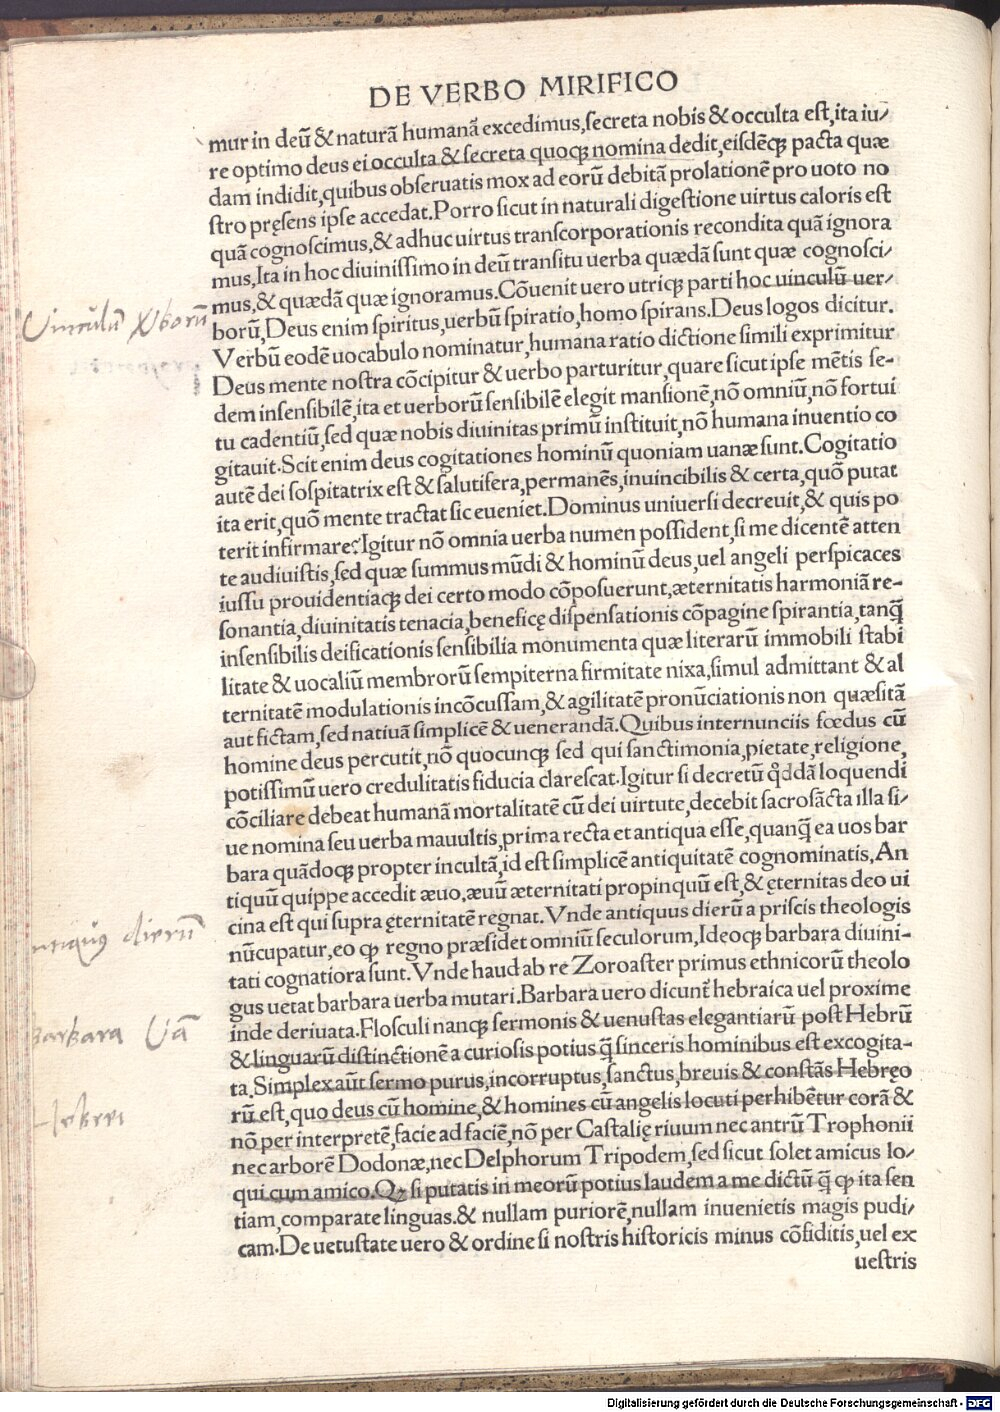 DE VERBO MIRIFICO
mur in deū & naturā humanā excedimus, secreta nobis & occulta est, ita iu/
re optimo deus ei occulta & secreta quoqꝫ nomina dedit, eisdēqꝫ pacta quæ
dam indidit, quibus obseruatis mox ad eorū debitā prolationē pro uoto no
stro pręsens ipse accedat. Porro sicut in naturali digestione uirtus caloris est
quā cognoscimus, & adhuc uirtus transcorporationis recondita quā ignora
mus, Ita in hoc diuinissimo in deū transitu uerba quædā sunt quæ cognosci/
mus, & quædā quæ ignoramus. Cōuenit uero utriqꝫ parti hoc uinculū uer/
Vinculū Vborū
borū, Deus enim spiritus, uerbū spiratio, homo spirans. Deus logos dicitur.
Verbū eodē uocabulo nominatur, humana ratio dictione simili exprimitur
Deus mente nostra cōcipitur & uerbo parturitur, quare sicut ipse mētis se-
dem insensibilē, ita et uerborū sensibilē elegit mansionē, nō omniū, nō fortui
tu cadentiū, sed quæ nobis diuinitas primū instituit, nō humana inuentio co
gitauit. Scit enim deus cogitationes hominū quoniam uanæ sunt. Cogitatio
autē dei sospitatrix est & salutifera, permanēs, inuincibilis & certa, quō putat
ita erit, quō mente tractat sic eueniet. Dominus uniuersi decreuit, & quis po
terit infirmare? Igitur nō omnia uerba numen possident, si me dicentē atten
te audiuistis, sed quæ summus mūdi & hominū deus, uel angeli perspicaces
iussu prouidentiaqꝫ dei certo modo cōposuerunt, æternitatis harmoniā re-
sonantia, diuinitatis tenacia, beneficę dispensationis cōpagine spirantia, tanq̄
insensibilis deificationis sensibilia monumenta quæ literarū immobili stabi
litate & uocaliū membrorū sempiterna firmitate nixa, simul admittant & al
ternitatē modulationis incōcussam, & agilitatē pronūciationis non quæsitā
aut fictam, sed natiuā simplicē & uenerandā. Quibus internunciis fœdus cū
homine deus percutit, nō quocunqꝫ sed qui sanctimonia, pietate, religione,
potissimū uero credulitatis fiducia clarescat. Igitur si decretū qďdā loquendi
cōciliare debeat humanā mortalitatē cū dei uirtute, decebit sacrosācta illa si/
ue nomina seu uerba mauultis, prima recta et antiqua esse, quanq̄ ea uos bar
bara quādoqꝫ propter incultā, id est simplicē antiquitatē cognominatis. An
tiquū quippe accedit æuo, æuū æternitati propinquū est, & ęternitas deo ui
cina est qui supra ęternitatē regnat. Vnde antiquus dierū a priscis theologis
ntiquus dierū
nūcupatur, eo qꝫ regno præsidet omniū seculorum, Ideoqꝫ barbara diuini-
tati cognatiora sunt. Vnde haud ab re Zoroaster primus ethnicorū theolo
gus uetat barbara uerba mutari. Barbara uero dicunt̄ hebraica uel proxime
Barbara Vā
inde deriuata. Flosculi nanqꝫ sermonis & uenustas elegantiarū post Hebrū
& linguarū distinctionē a curiosis potius q̄ sinceris hominibus est excogita-
ta. Simplex aūt sermo purus, incorruptus, sanctus, breuis & constās Hebręo
rū est, quo deus cū homine, & homines cū angelis locuti perhibētur corā &
nō per interpretē, facie ad faciē, nō per Castalię riuum nec antrū Trophonii
nec arborē Dodonæ, nec Delphorum Tripodem, sed sicut solet amicus lo/
qui cum amico. Qꝫ si putatis in meorū potius laudem a me dictū q̄ qꝫ ita sen
tiam, comparate linguas. & nullam puriorē, nullam inuenietis magis pudi/
cam. De uetustate uero & ordine si nostris historicis minus cōfiditis, uel ex
uestris
Digitalisierung gefördert durch die Deutsche Forschungsgemeinschaft - DFG